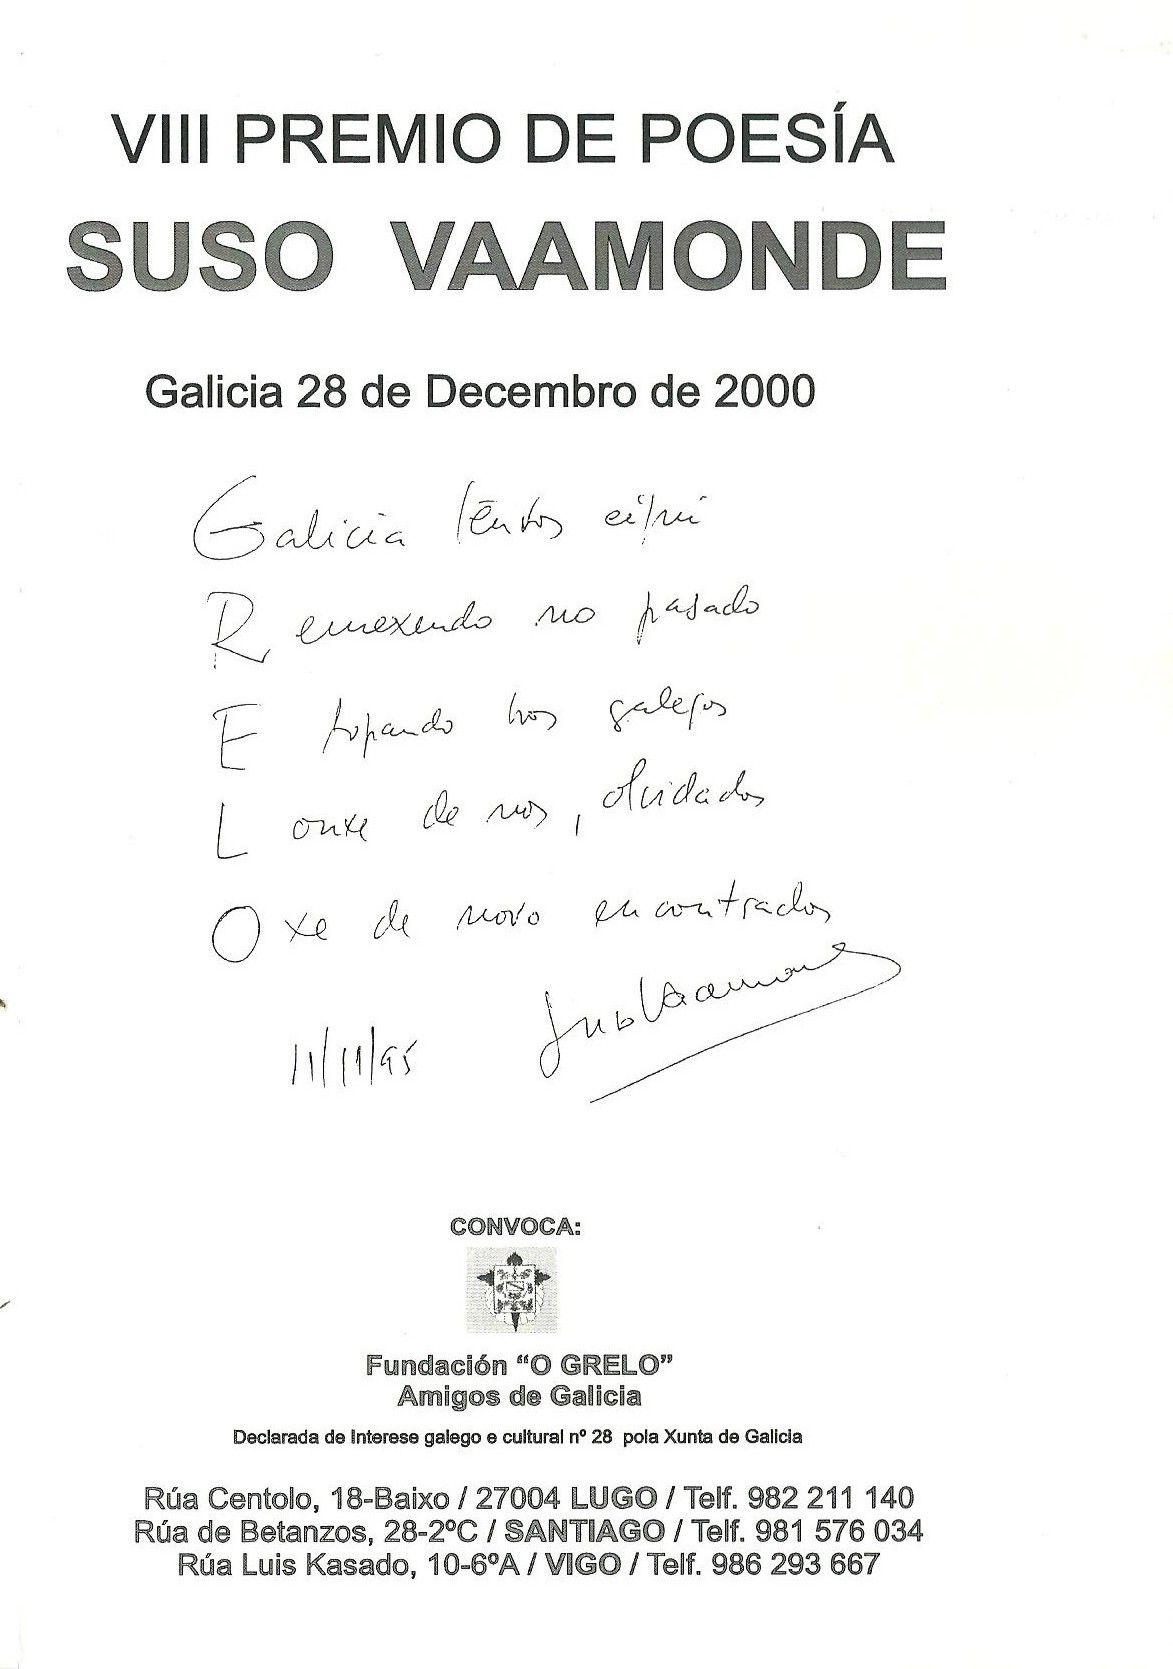 VIII PREMIO DE POESÍA
SUSO VAAMONDE
Galicia 28 de Decembro de 2000
Galicia
Remexendo no pasado
E topando hos galegos
Lonxe de nos, olvidados
Oxe de novo encontrados
Suso Vaamonde
11/11/95
CONVOCA:
Fundación “O GRELO”
Amigos de Galicia
Declarada de Interese galego e cultural nº 28 pola Xunta de Galicia
Rúa Centolo, 18-Baixo / 27004 LUGO / Telf. 982 211 140
Rúa de Betanzos, 28-2ºC / SANTIAGO / Telf. 981 576 034
Rúa Luis Kasado, 10-6ºA / VIGO / Telf. 986 293 667